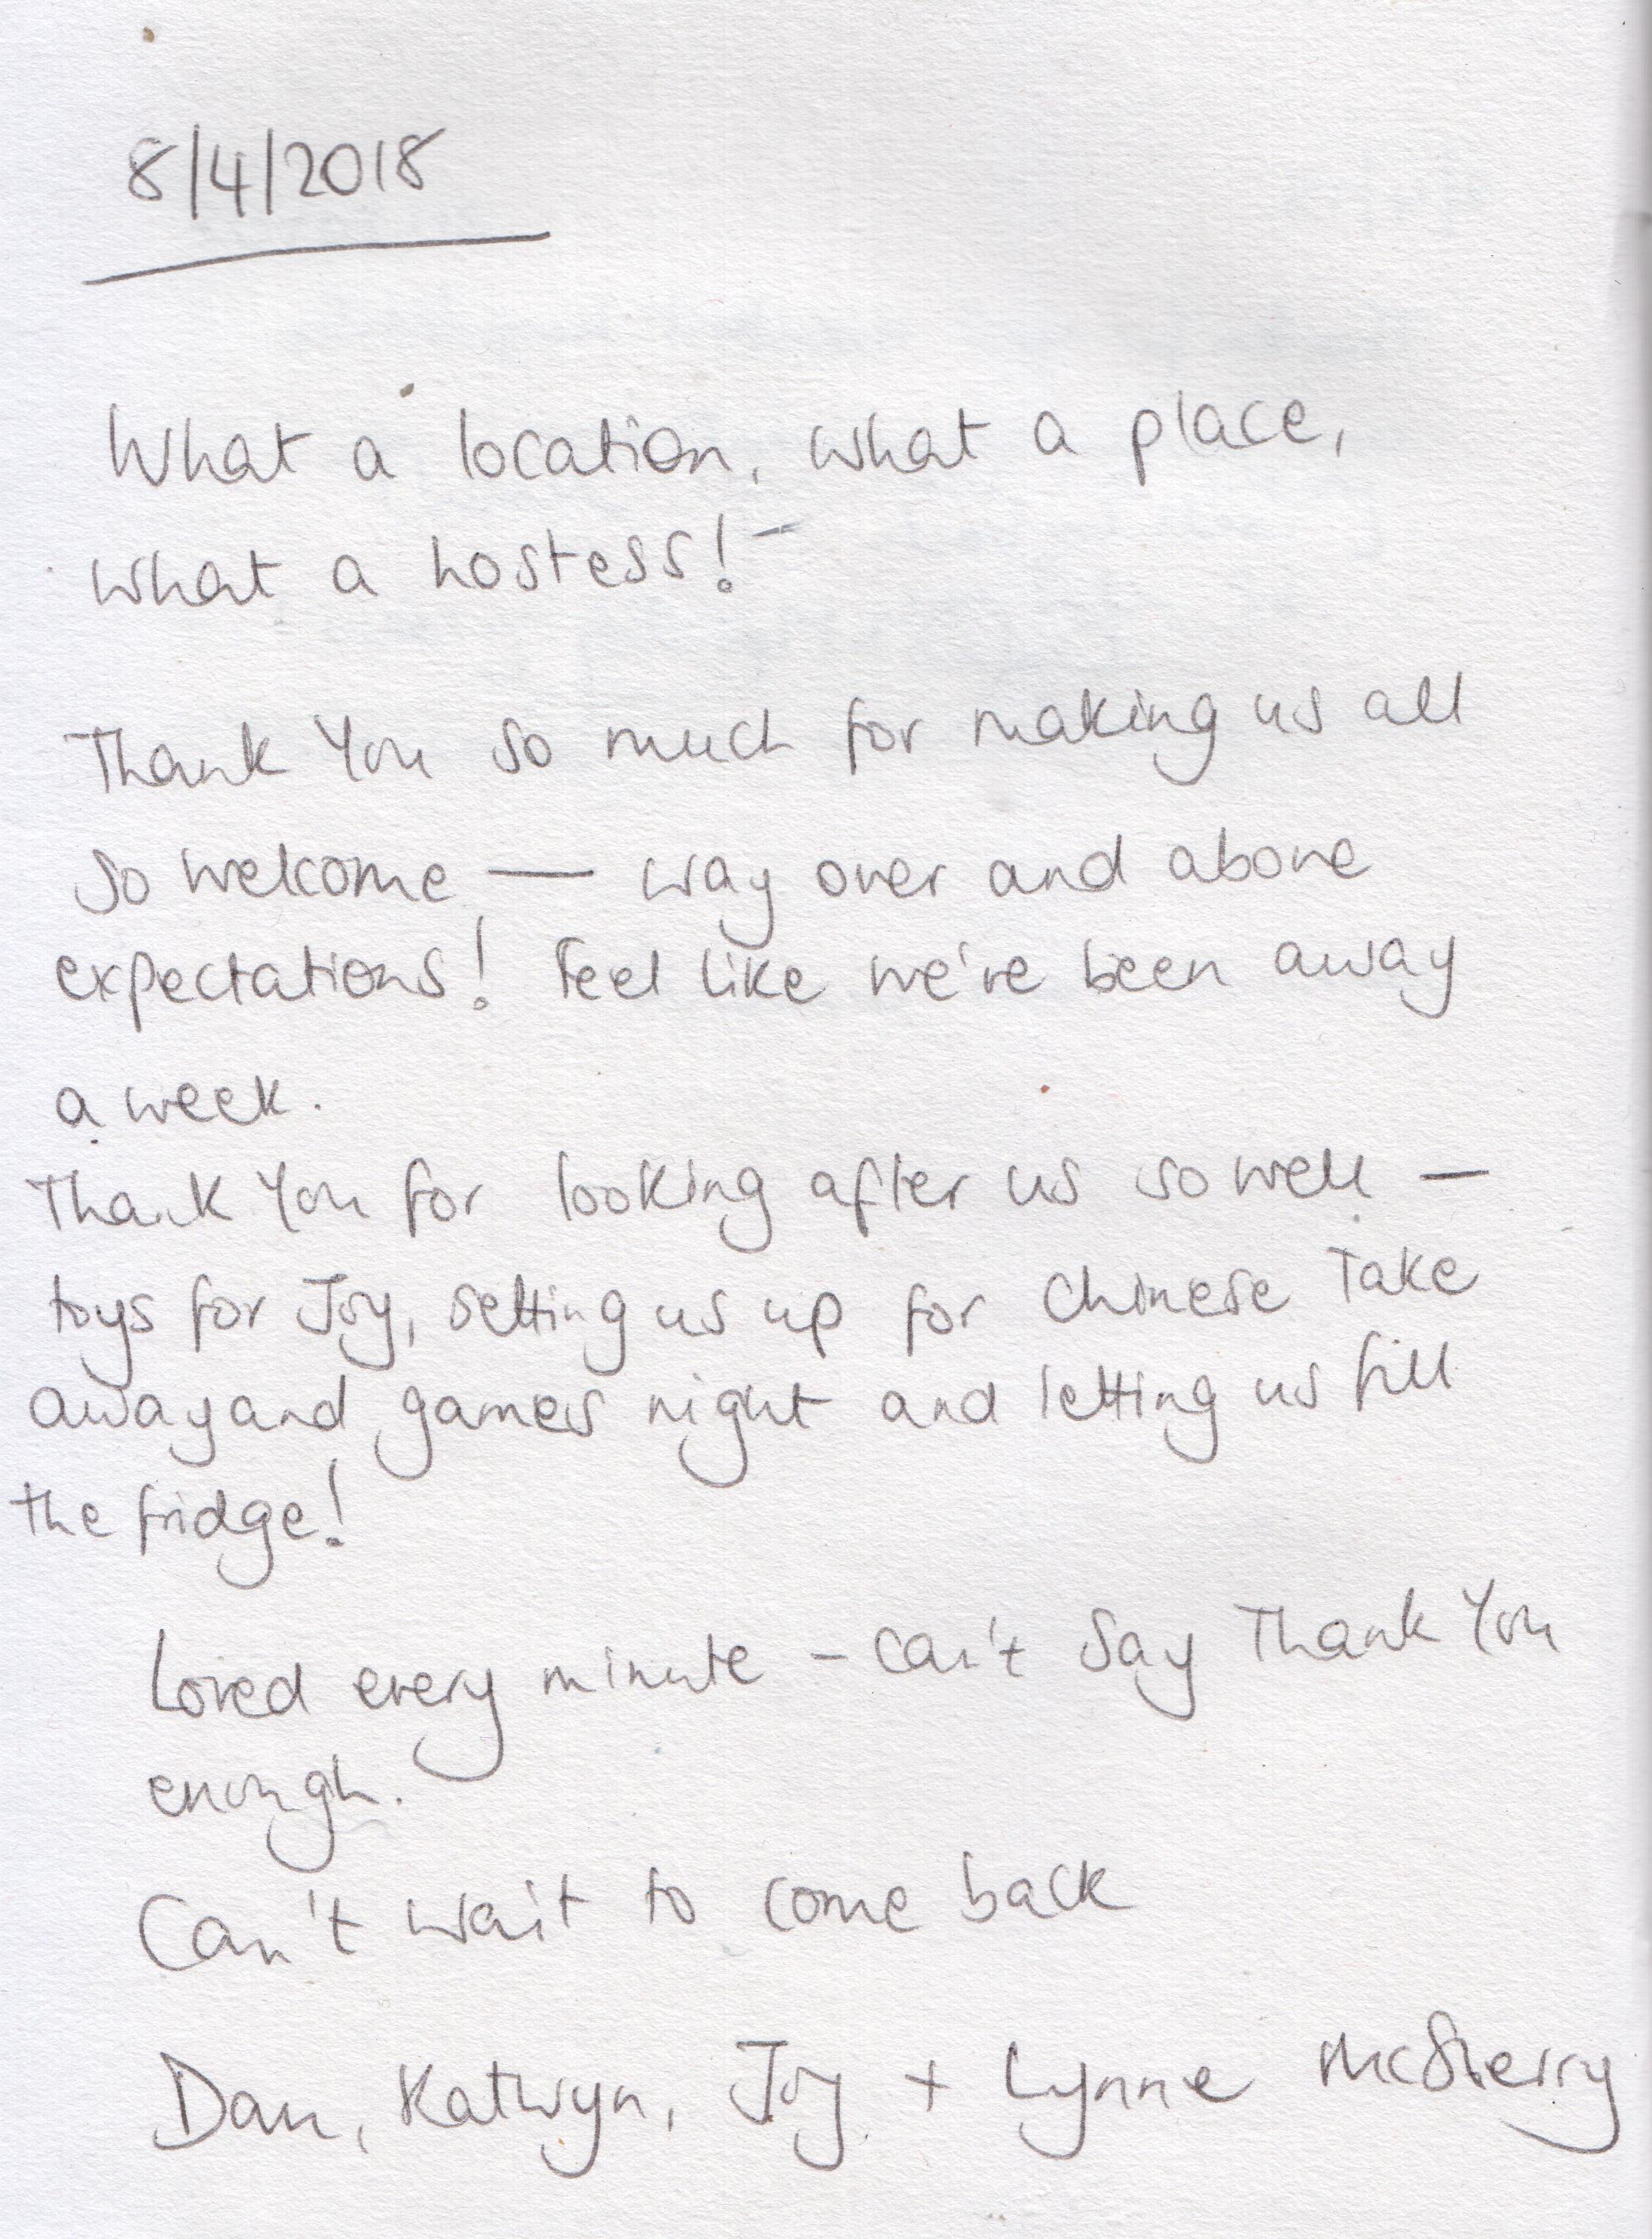 8/4/2018
What a location, what a place,
what a hostess! -
Thank You so much for making us all
so welcome — way over and above
expectations! Feel like we've been away
a week.
Thank You for looking after us so well —
toys for Joy, setting us up for Chinese Take
away and games night and letting us fill
the fridge!
Loved every minute - can't say Thank You
enough.
Can't wait to come back
Dan, Kathryn, Joy + Lynne McSherry